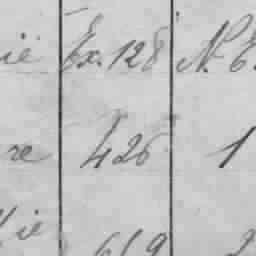 ie Ex. 128 N. E.
re 426 1
ie
619 2